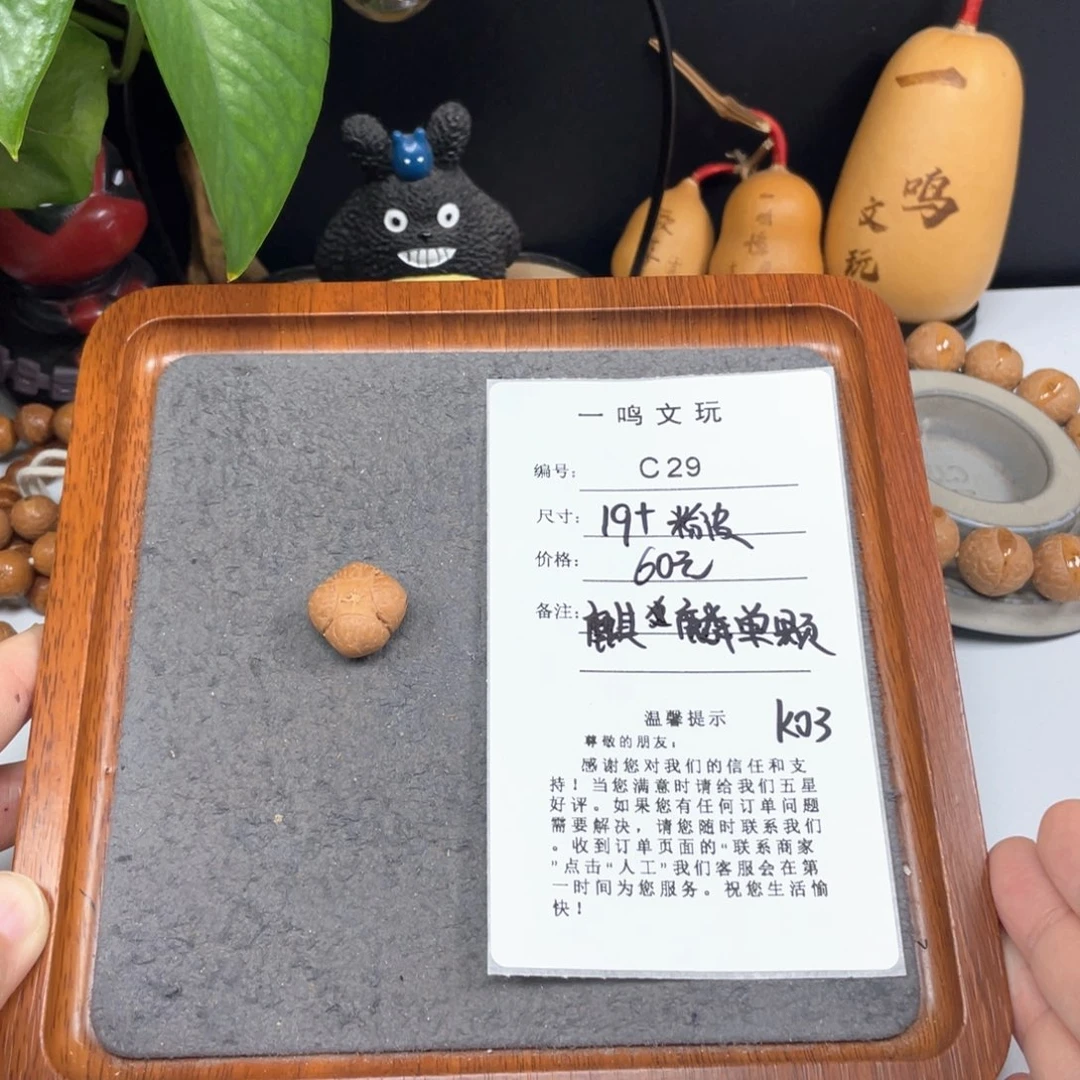 一
鸣
文
玩
一鸣文玩
编号: C29
尺寸: 19+ 粉皮
价格: 60元
备注: 麒麟单颗
温馨提示
K03
尊敬的朋友:
感谢您对我们的信任和支
持！当您满意时请给我们五星
好评。如果您有任何订单问题
需要解决，请您随时联系我们
。收到订单页面的“联系商家
”点击“人工”我们客服会在第
一时间为您服务。祝您生活愉
快！